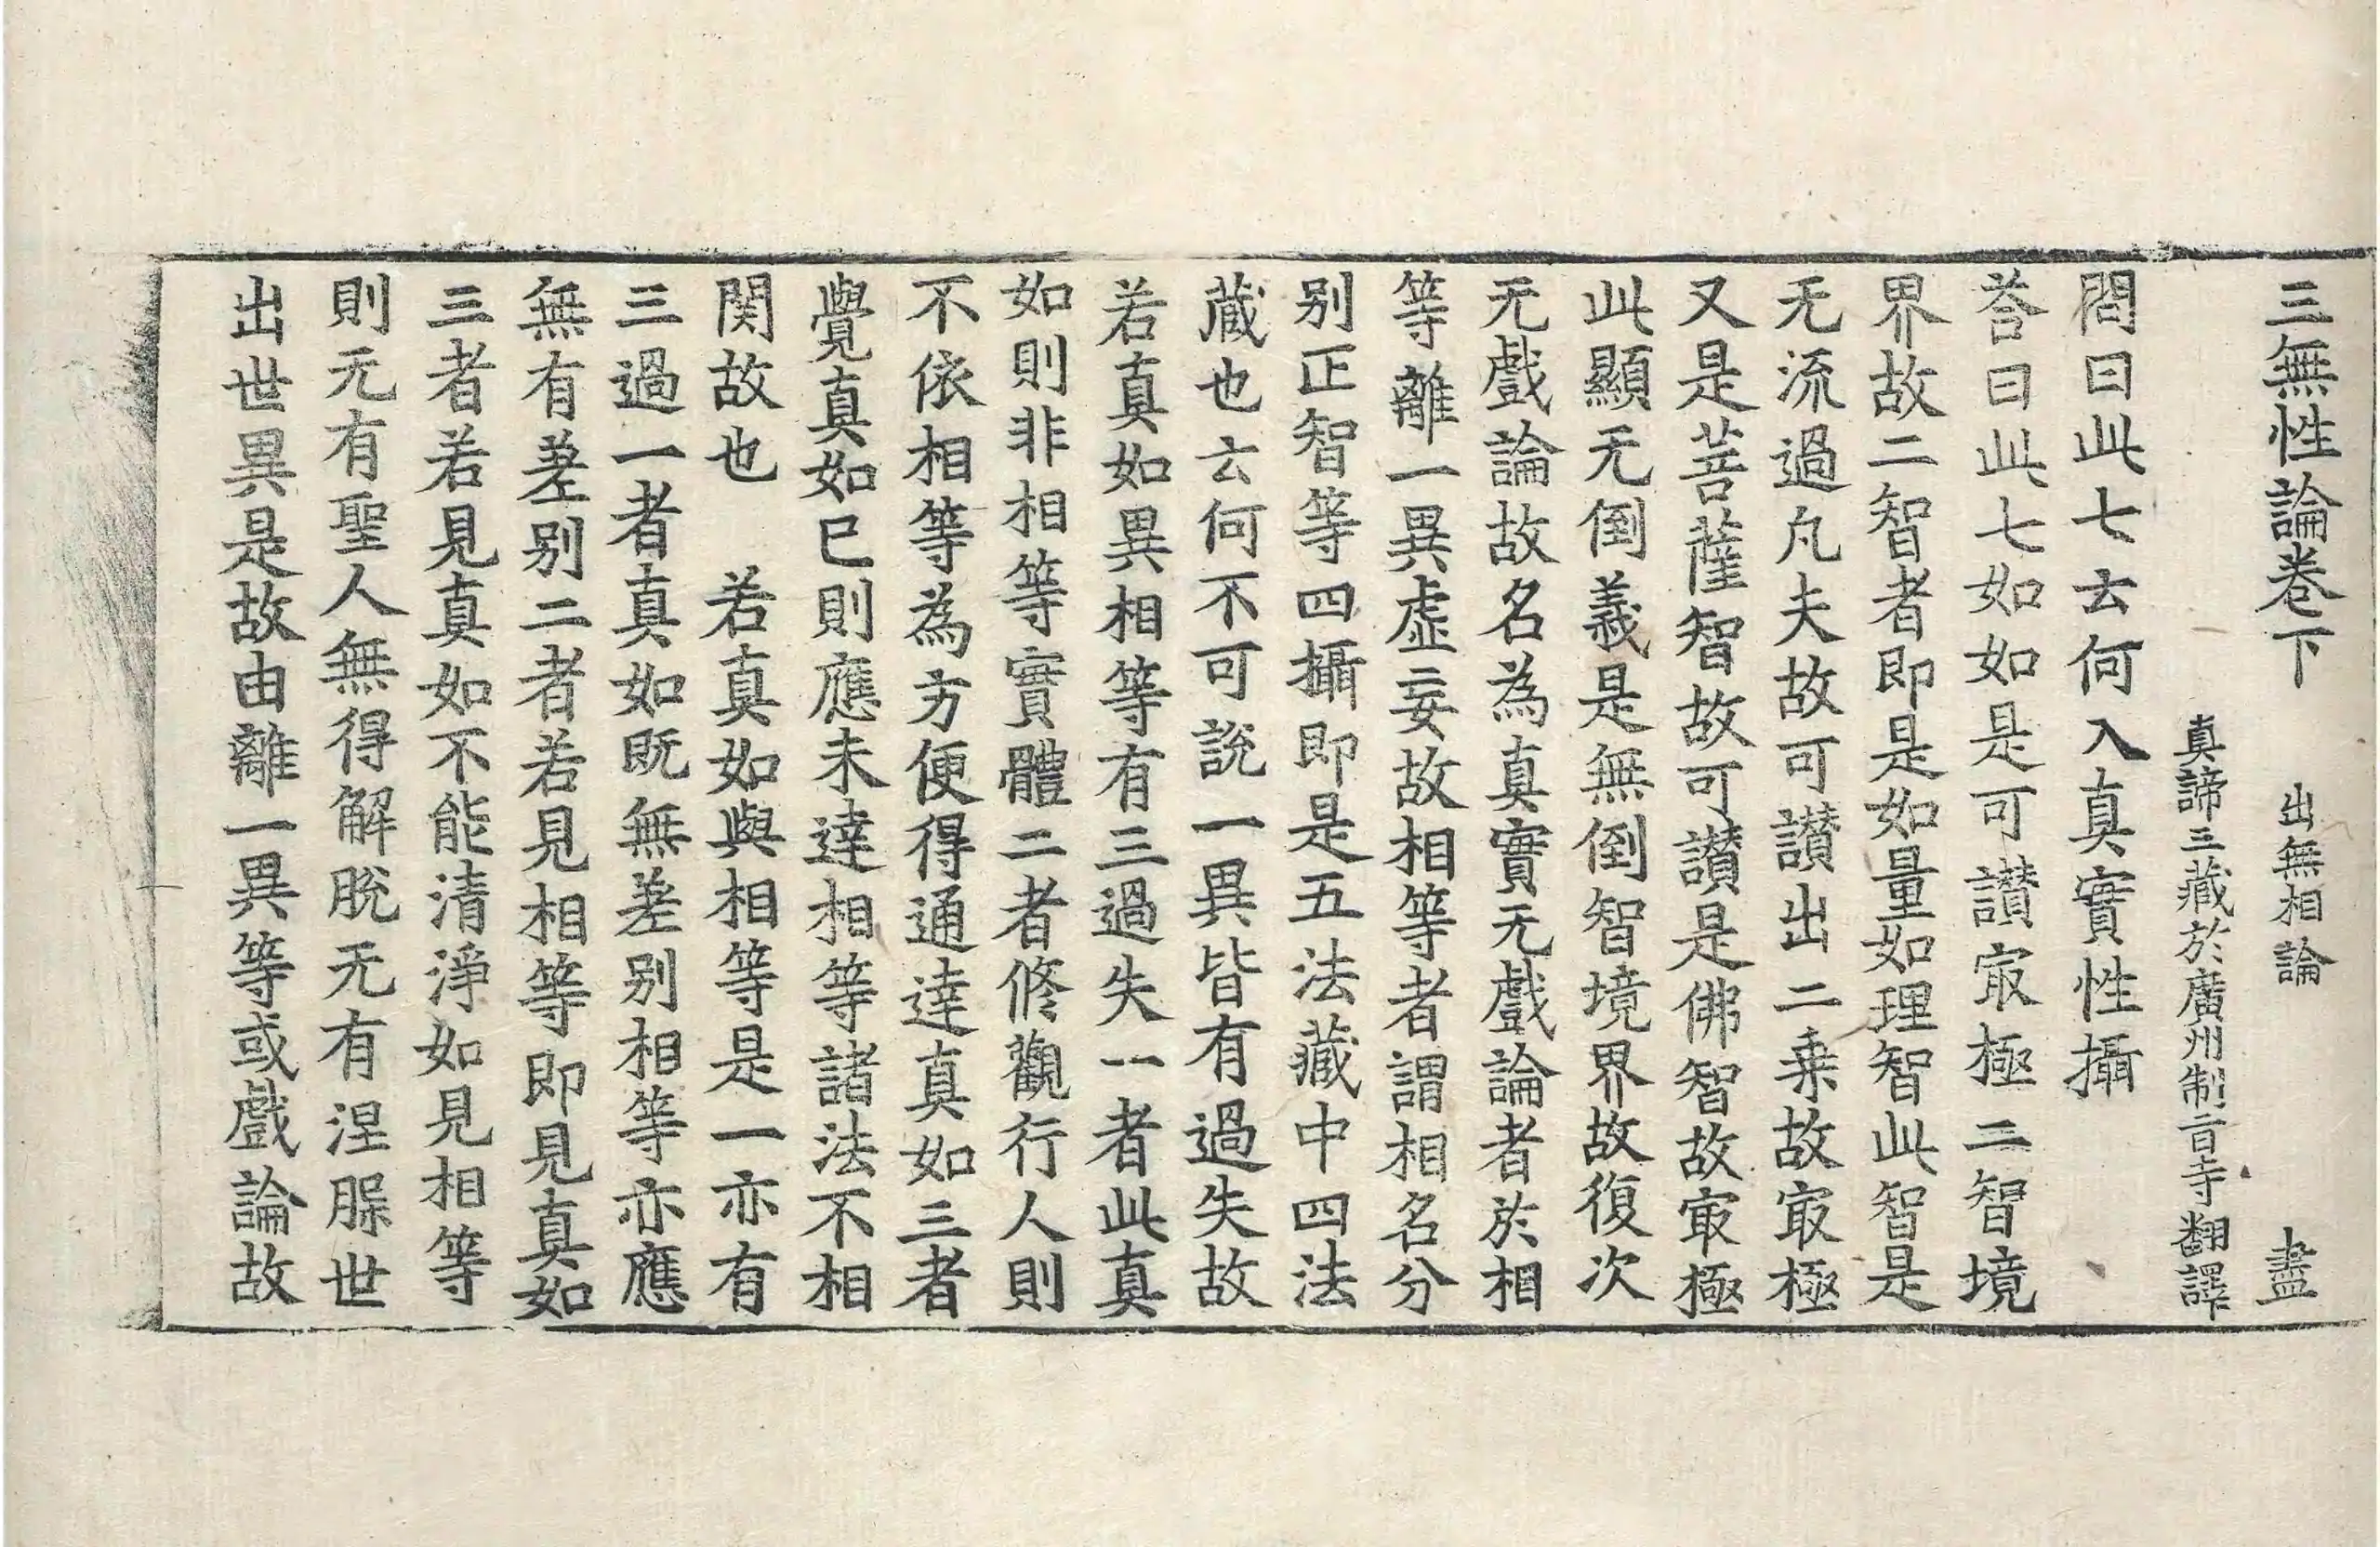 三無性論卷下　出無相論　盡
真諦三藏於廣州制旨寺翻譯
問曰此七云何入真實性攝
荅曰此七如如是可讃㝡極二智境
界故二智者即是如量如理智此智是
无流過凡夫故可讃出二乗故㝡極
又是菩薩智故可讃是佛智故㝡極
此顯无倒義是無倒智境界故復次
无戲論故名為真實无戲論者於相
等離一異虛妄故相等者謂相名分
别正智等四攝即是五法藏中四法
蔵也云何不可說一異皆有過失故
若真如異相等有三過失一者此真
如則非相等實體二者修觀行人則
不依相等為方便得通達真如三者
覺真如已則應未達相等諸法不相
関故也　若真如與相等是一亦有
三過一者真如既無差别相等亦應
無有差别二者若見相等即見真如
三者若見真如不能清淨如見相等
則无有聖人無得解脫无有涅槃世
出世異是故由離一異等或戲論故